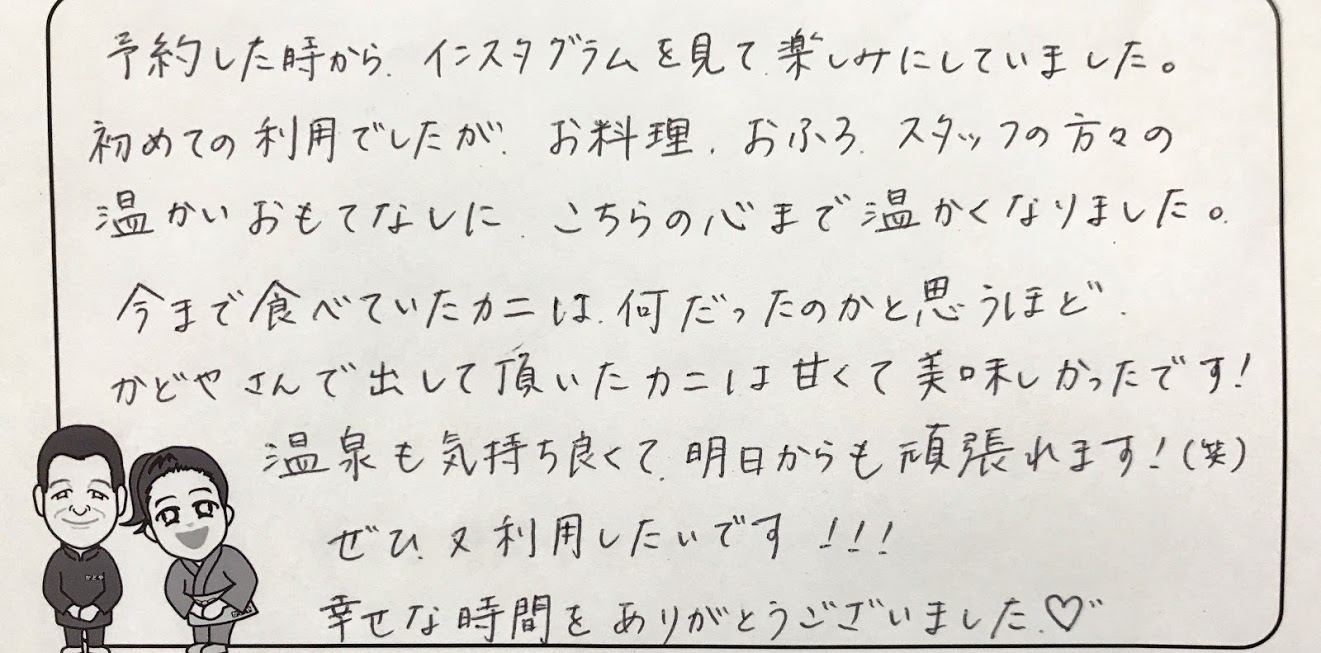 予約した時から、インスタグラムを見て、楽しみにしていました。
初めての利用でしたが、お料理、おふろ、スタッフの方々の
温かいおもてなしに、こちらの心まで温かくなりました。
今まで食べていたカニは、何だったのかと思うほど、
かどやさんで出して頂いたカニは甘くて美味しかったです!
温泉も気持ち良くて、明日からも頑張れます!(笑)
ぜひ、又利用したいです!!!
幸せな時間をありがとうございました。♡